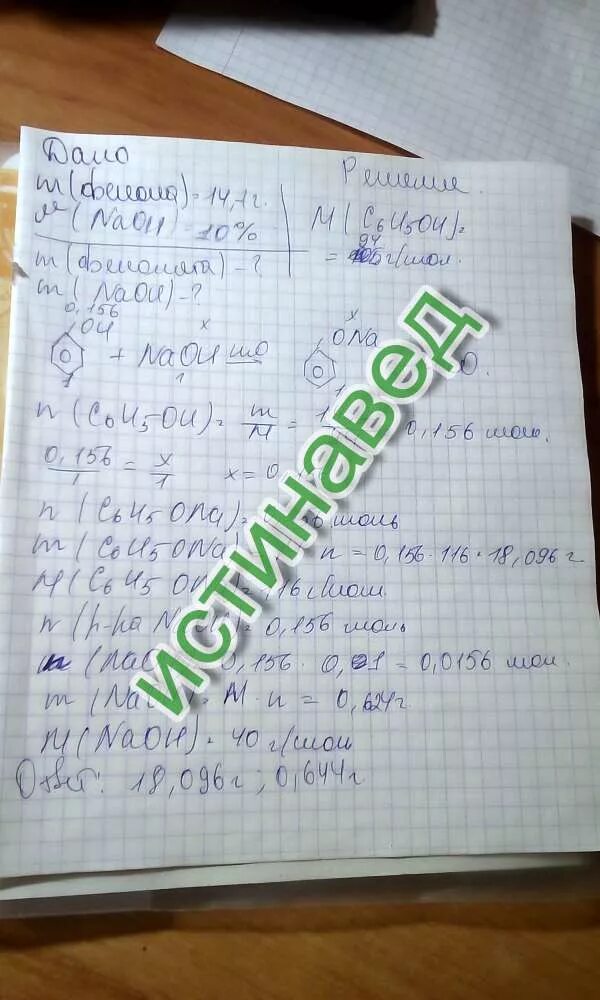 Дано
Решение.
m(фенола)=14,1г.
(NaOH)=10%
m(фенолята)-?
m(NaOH)-?
M(C6H5OH)=
94
= г/мол.
0,156
x
x
OH
+ NaOH
ONa
O.
1
1
1
n(C6H5OH)= m/M = 1 0,156 мол.
0,156/1 = x/1 x=0,1
n(C6H5ONa)= 56 моль
m(C6H5ONa) n=0,156·116=18,096г
M(C6H5ON =116г/мол.
n(р-ра N )=0,156 моль
n(NaO 0,156·0,01=0,0156 мол.
m(Na = M·n = 0,624г
M(NaOH)=40г/мол
Ответ: 18,096г; 0,644г
истинавед